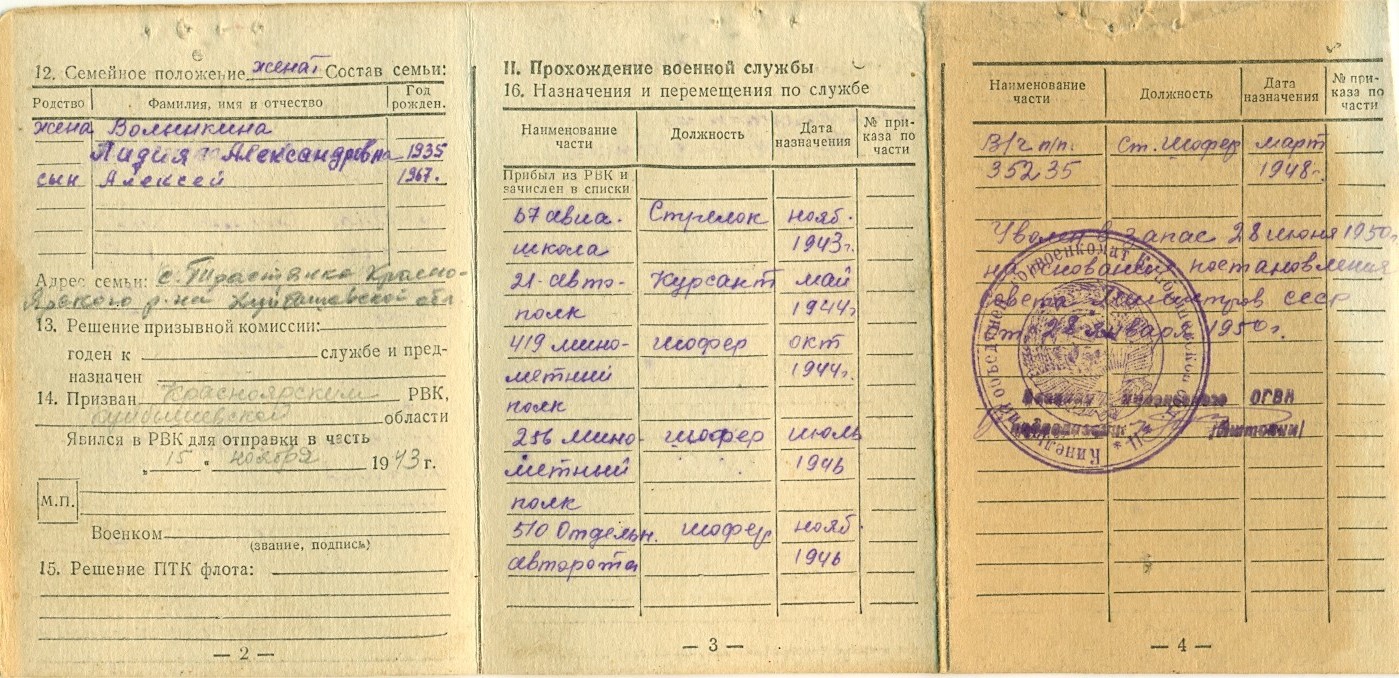 12. Семейное положение женат Состав семьи:
Родство Фамилия, имя и отчество Год рожден.
жена Волникина
Лидия Александровна 1935
сын Алексей 1967.
Адрес семьи: с. Красно-
ярского р-на Куйбышевской обл.
13. Решение призывной комиссии:
годен к службе и пред-
назначен
14. Призван Красноярским РВК,
куйбышевской области
Явился в РВК для отправки в часть
„ 15 " ноября 1943 г.
М.П.
Военком
(звание, подпись)
15. Решение ПТК флота:
— 2 —
II. Прохождение военной службы
16. Назначения и перемещения по службе
Наименование части Должность Дата назначения № при- каза по части
Прибыл из РВК и
зачислен в списки
67 авиа- Стрелок нояб.
школа 1943г.
21-авто- Курсант май
полк 1944г
419 мино- шофер окт
метный 1944г.
полк
256 мино- шофер июль
метный 1946
полк
510 Отдельн. шофер нояб.
авторота 1946
— 3 —
Наименование части Должность Дата назначения № при- каза по части
В/ч п/п. Ст. шофер март
35235 1948г.
Уволен в запас 28 июня 1950г
на основании постановления
Совета Министров СССР
от 28 января 1950г.
— 4 —